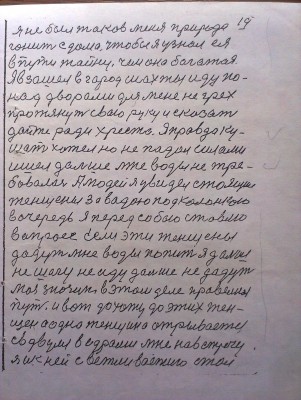 19
я не был таков меня природа
гонит с дома, чтобы я узнал ея
в пути тайну, чем она богатая
Я взошел в город шахты иду по-
над дворами для мене не грех
протянут свою руку и сказат
дайте ради христа. Я правда ку-
шат хотел но не падал силами
шел дальше мне воды не тре-
бовалас. А людей я увидел стояли
женщены за вадою под колонкою
в очередь я перед собою ставлю
вопрос если эти женщены
дадут мне воды попит я дальше
не шагу не иду дальше не дадут
моя значит в этом деле правелния
пут. и вот дохожу до этих жен-
щен а одна женщина отрывается
с двумя ведрами мне навстречу
я и к ней с ветливастию стой